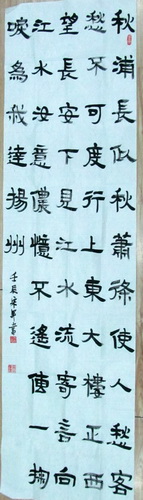 秋浦長似秋蕭條使人愁客
愁不可度行上東大樓正西
望長安下見江水流寄言向
江水汝意儂憶不遙傳一掬
淚為我達揚州
壬辰
書